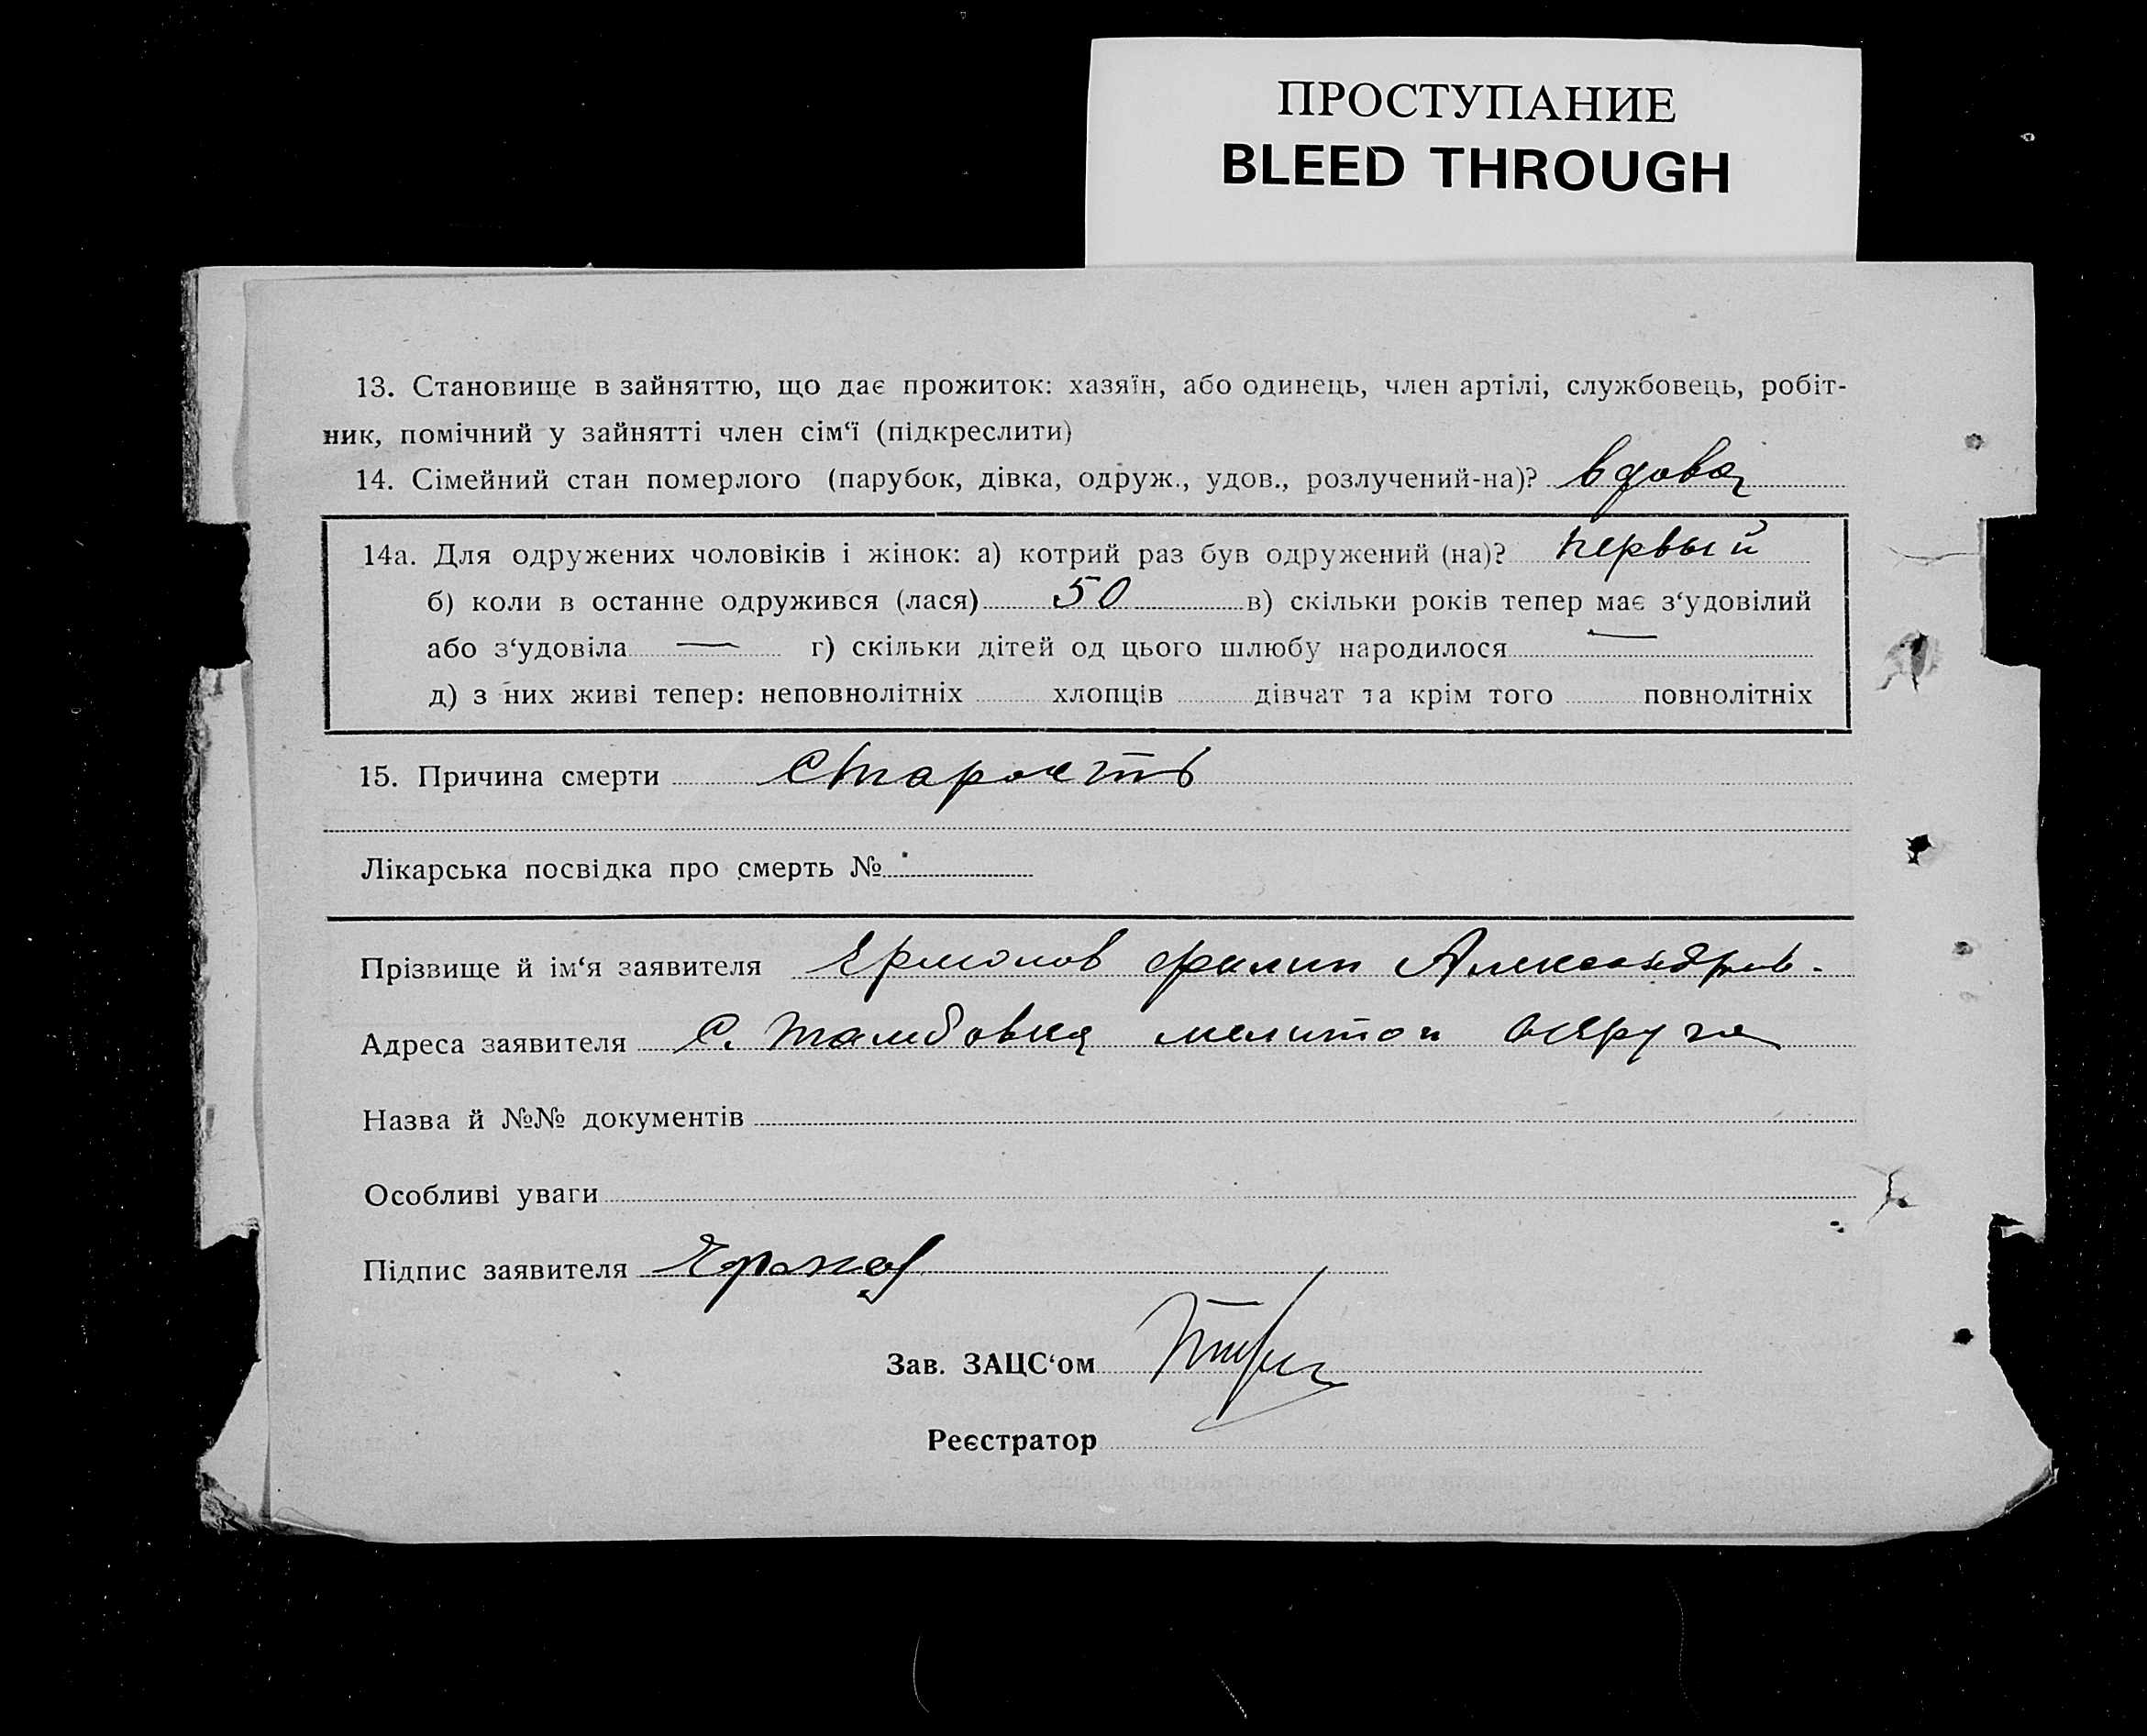 ПРОСТУПАНИЕ
BLEED THROUGH
13. Становище в зайняттю, що дає прожиток: хазяїн, або одинець, член артілі, службовець, робіт-
ник, помічний у зайнятті член сім‘ї (підкреслити)
14. Сімейний стан померлого (парубок, дівка, одруж., удов., розлучений-на)? вдова
14а. Для одружених чоловіків і жінок: а) котрий раз був одружений (на)? первый
б) коли в останне одружився (лася) 50 в) скільки років тепер має з‘удовілий
або з‘удовіла — г) скільки дітей од цього шлюбу народилося —
д) з них живі тепер: неповнолітніх хлопців дівчат та крім того повнолітніх
15. Причина смерти старость
Лікарська посвідка про смерть №
Прізвище й ім‘я заявителя Ермолов Филип Александров.
Адреса заявителя С. Тамбовка мелитоп округа
Назва й №№ документів
Особливі уваги
Підпис заявителя
Зав. ЗАЦС‘ом
Реєстратор